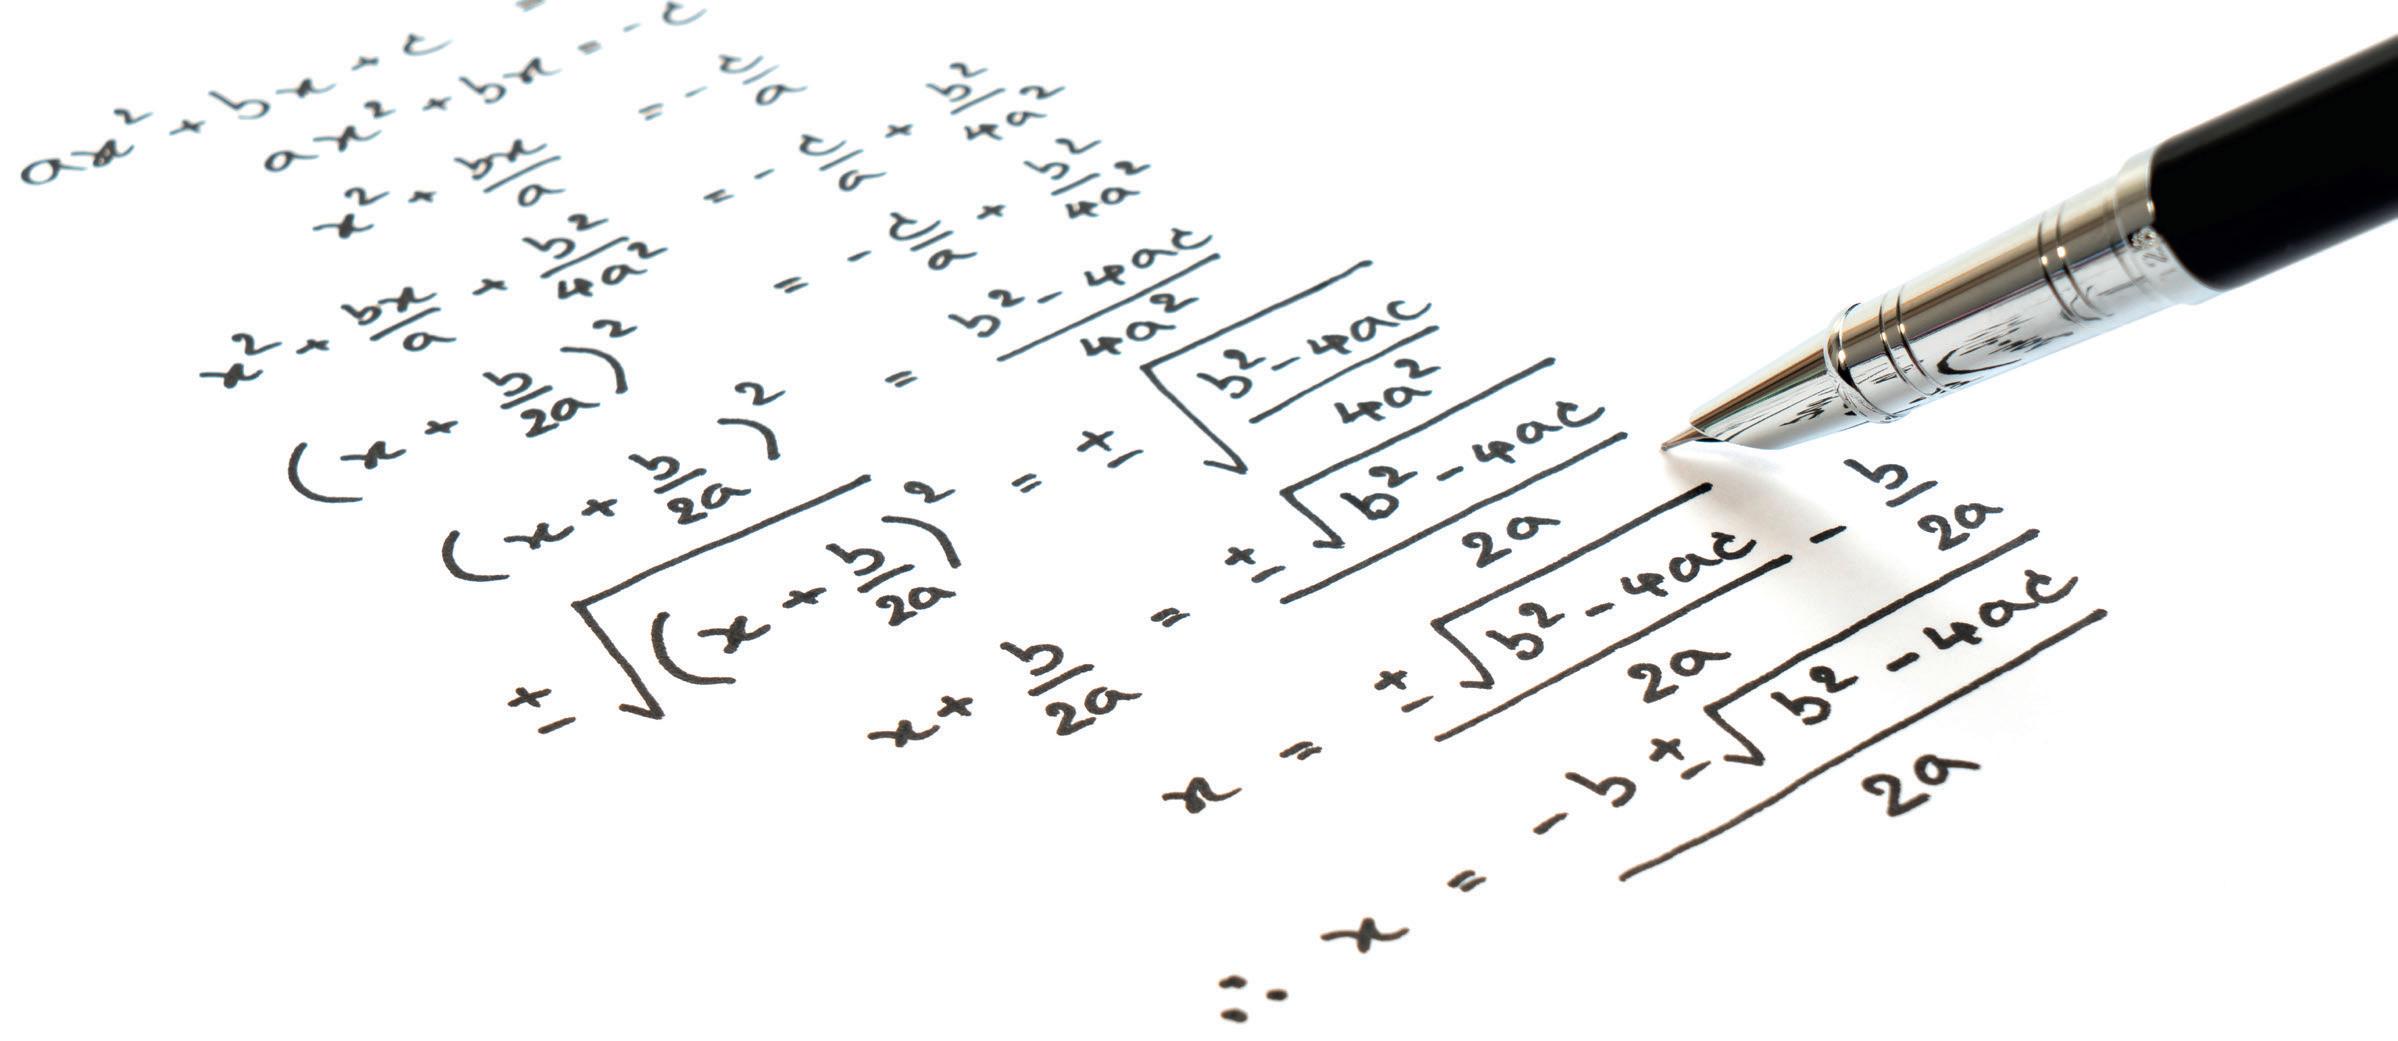 ax² + bx + c =
ax² + bx = - c
x² + bx/a = - c/a
x² + bx/a + b²/4a² = - c/a + b²/4a²
(x + b/2a)² = - c/a + b²/4a²
(x + b/2a)² = b² - 4ac/4a²
± √(x + b/2a)² = ± √b² - 4ac/4a²
x + b/2a = ± √b² - 4ac/2a
x = ± √b² - 4ac/2a - b/2a
∴ x = - b ± √b² - 4ac/2a